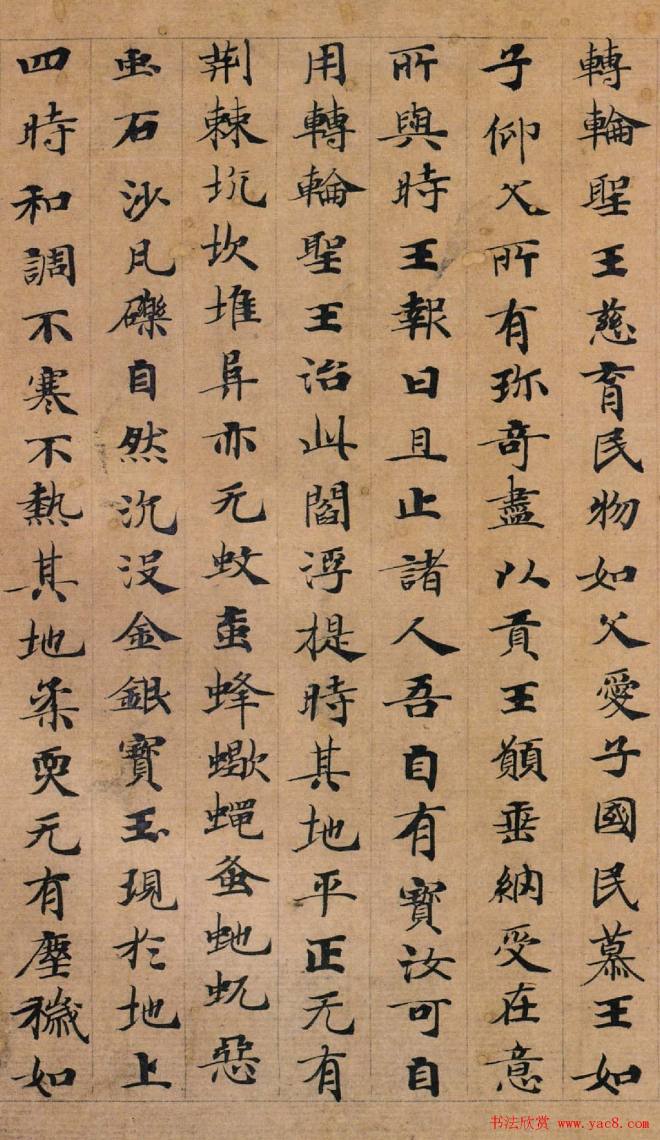 轉輪聖王慈育民物如父愛子國民慕王如
子仰父所有珎奇盡以貢王願垂納受在意
所與時王報曰且止諸人吾自有寳汝可自
用轉輪聖王治此閻浮提時其地平正无有
荆棘坑坎堆阜亦无蚊虻蜂蠍蠅蚤虵蚖惡
虫石沙凡礫自然沉没金銀寳玉現扵地上
四時和調不寒不熱其地柔耎无有塵穢如
书法欣赏 www.yac8.com